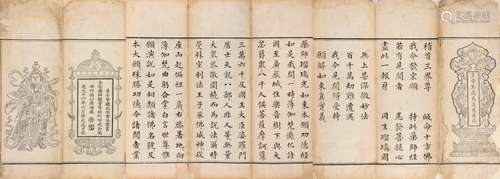 稽首三界尊　皈命十方佛
我今發宏願　持此藥師經
若有見聞者　悉發菩提心
盡此一報身　同生琉璃國
無上甚深微妙法
百千萬劫難遭遇
我今見聞得受持
願解如來真實義
藥師琉璃光如來本願功德經
如是我聞一時薄伽梵遊化諸
國至廣嚴城住樂音樹下與大
苾蒭眾八千人俱菩薩摩訶薩
三萬六千及國王大臣婆羅門
居士天龍八部人非人等無量
大眾恭敬圍繞而為說法爾時
曼殊室利法王子承佛威神從
座而起偏袒一肩右膝著地向
薄伽梵曲躬合掌白言世尊惟
願演說如是相類諸佛名號及
本大願殊勝功德令諸聞者業